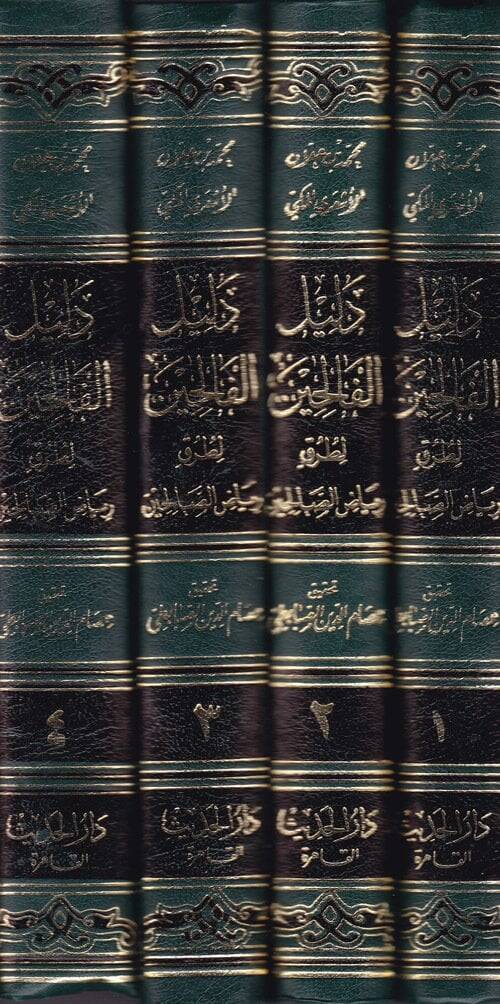 محمد بن علان
الأشعري المكي
دليل
الفالحين
لطرق
رياض الصالحين
تحقيق
عصام الدين الصبابطي
١
دار الحديث
القاهرة
محمد بن علان
الأشعري المكي
دليل
الفالحين
لطرق
رياض الصالحين
تحقيق
عصام الدين الصبابطي
٢
دار الحديث
القاهرة
محمد بن علان
الأشعري المكي
دليل
الفالحين
لطرق
رياض الصالحين
تحقيق
عصام الدين الصبابطي
٣
دار الحديث
القاهرة
محمد بن علان
الأشعري المكي
دليل
الفالحين
لطرق
رياض الصالحين
تحقيق
عصام الدين الصبابطي
٤
دار الحديث
القاهرة